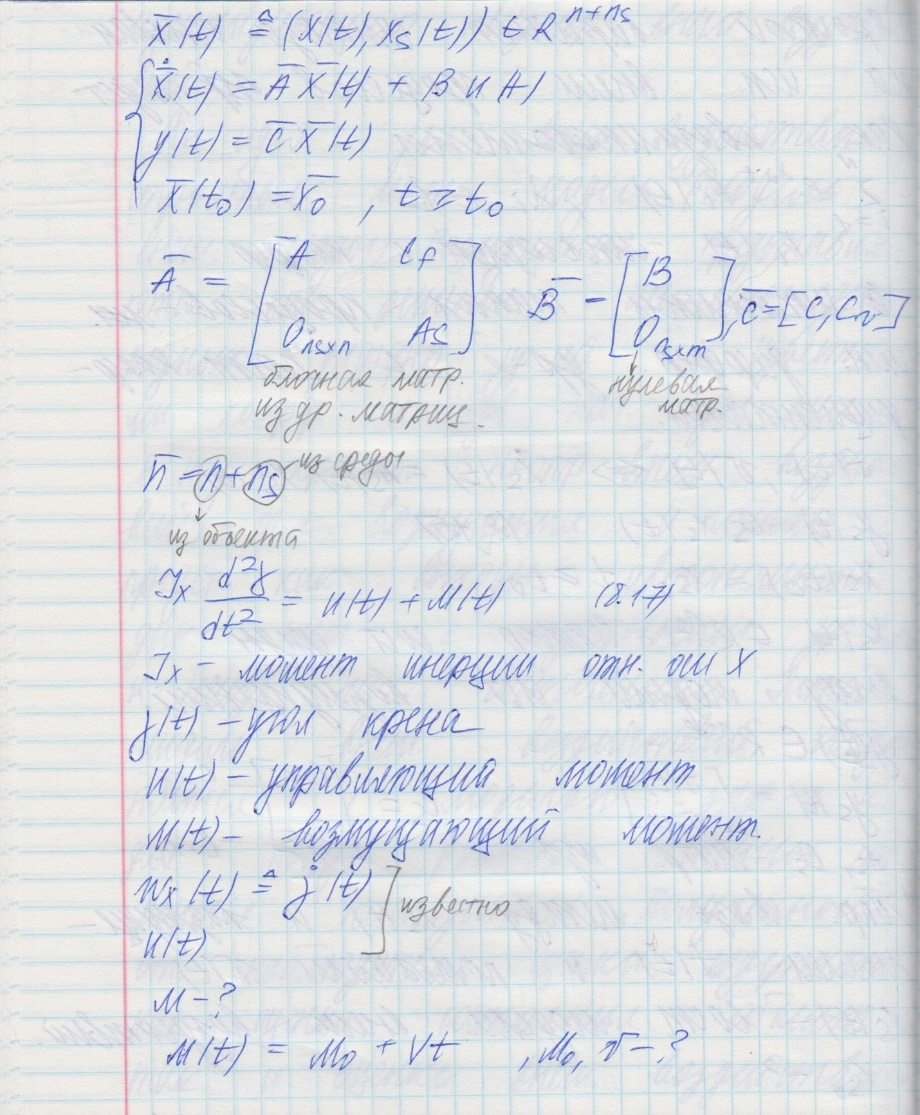 x̄(t) ≙ (x(t), x_s(t)) ∈ R^{n+n_s}
ẋ̄(t) = Ā x̄(t) + B u(t)
y(t) = c̄ x̄(t)
x̄(t₀) = x̄₀ , t ≥ t₀
Ā = [A C_f; O_{n_s×n} A_s] B̄ – [B; O_{n_s×m}], c̄ = [C, C_v]
блочная матр. нулевая
из др. матриц. матр.
n̄ = n + n_s из среды
из объекта
J_x d²γ/dt² = u(t) + M(t) (8.17)
J_x – момент инерции отн. оси X
γ(t) – угол крена
u(t) – управляющий момент
M(t) – возмущающий момент.
w_x(t) ≙ γ̇(t)
известно
u(t)
M – ?
M(t) = M₀ + Vt , M₀, v – ?